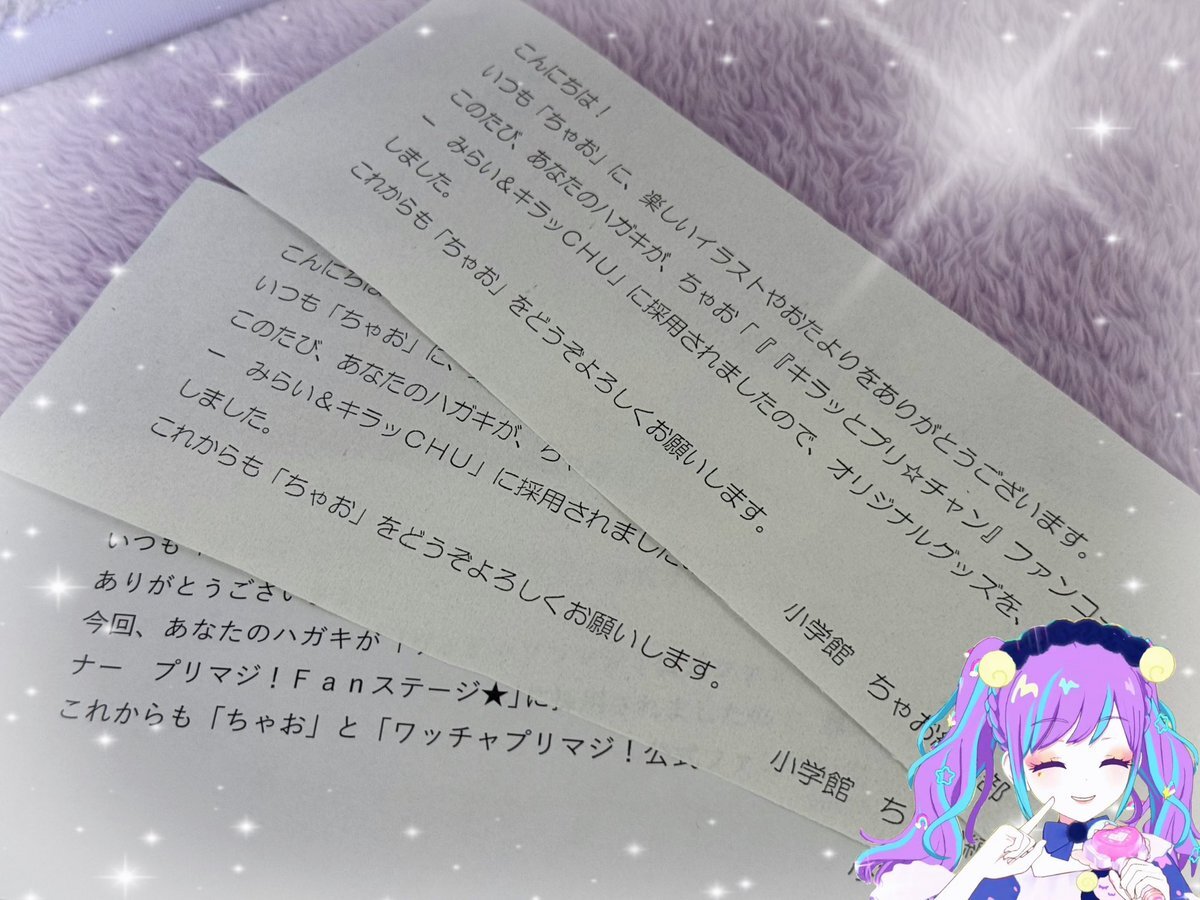 こんにちは！
いつも「ちゃお」に、楽しいイラストやおたよりをありがとうございます。
このたび、あなたのハガキが、ちゃお「『『キラッとプリ☆チャン』ファンコー
ー　みらい＆キラッCHU」に採用されましたので、オリジナルグッズを、
しました。
これからも「ちゃお」をどうぞよろしくお願いします。
小学館　ちゃお
こんにちは
いつも「ちゃお」に、
このたび、あなたのハガキが、ち
ー　みらい＆キラッCHU」に採用されました
しました。
これからも「ちゃお」をどうぞよろしくお願いします。
小学館　ち
いつも
ありがとうござい
今回、あなたのハガキが
ナー　プリマジ！Ｆａｎステージ★」に
これからも「ちゃお」と「ワッチャプリマジ！公式